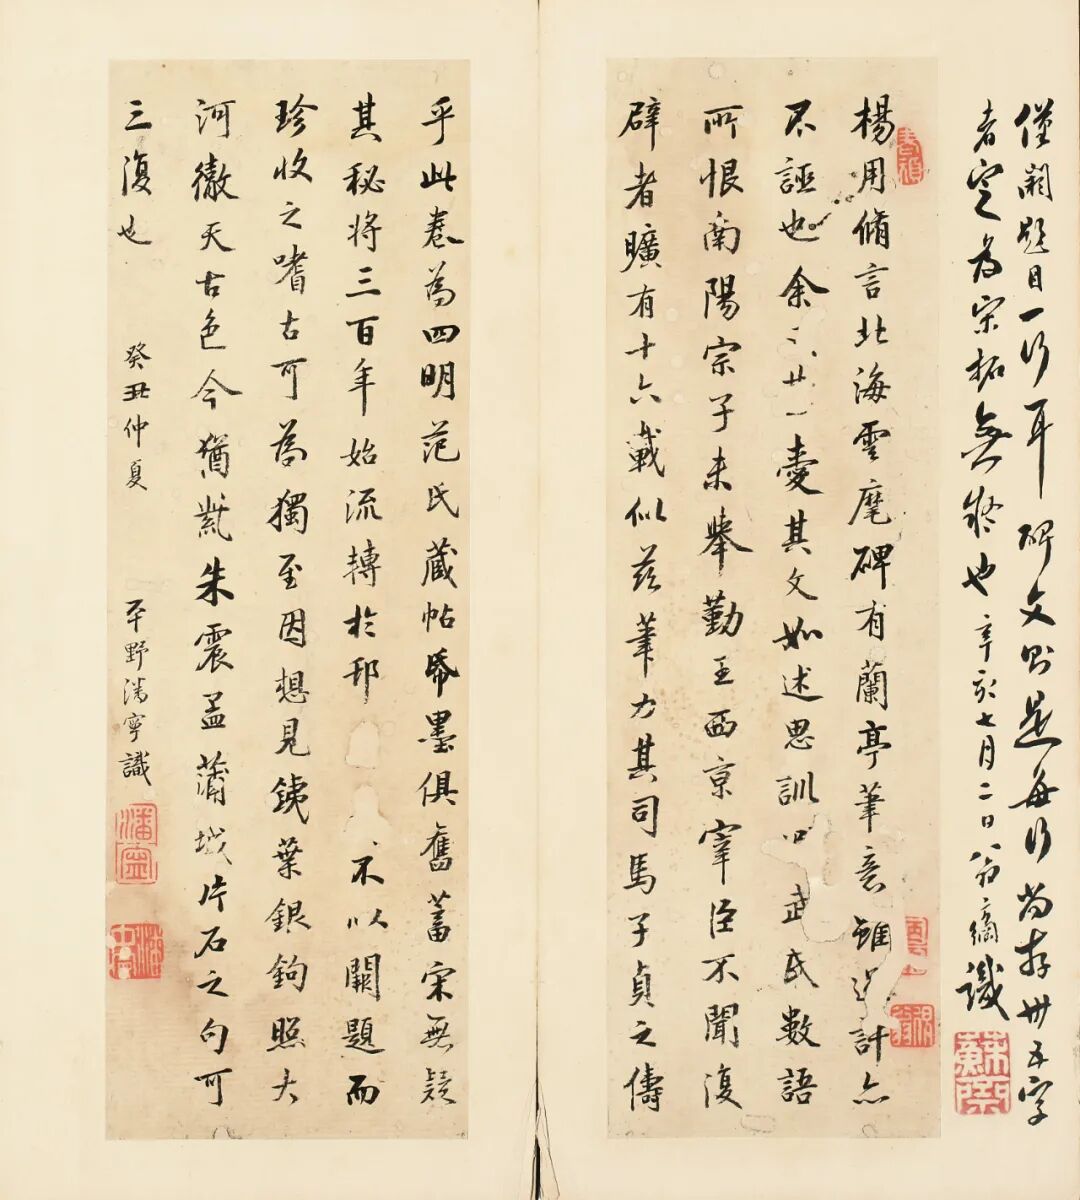 僅闕題目一行耳碑文則是每行尚存卅五字
者定為宋拓無疑也辛亥七月二日八翁
識
楊用脩言北海雲麾碑有蘭亭筆意雖計亦
不誣也余廿一壹其文如述思訓武氏數語
所恨南陽宗子未舉勤王西京宰臣不聞復
辟者曠有十六載似茲筆力其司馬子貞之儔
乎此卷為四明范氏藏帖紙墨俱舊蓄宋無疑
其秘將三百年始流轉於邗不以闕題而
珍收之嗜古可為獨至因想見銕葉銀鉤照大
河徹天古色今猶朱震孟蒲城片石之句可
三復也
癸丑仲夏
平野潘寧識
潘寧